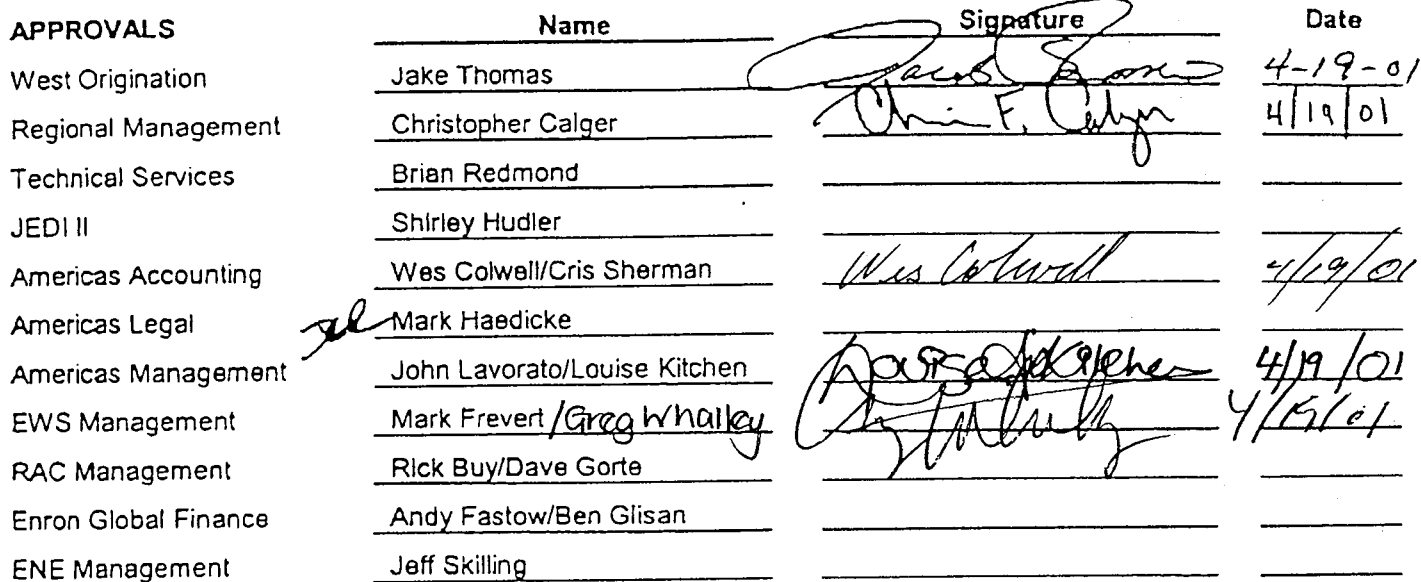 APPROVALS Name Signature Date
West Origination Jake Thomas 4-19-01
Regional Management Christopher Calger Chris F. Calger 4/19/01
Technical Services Brian Redmond
JEDI II Shirley Hudler
Americas Accounting Wes Colwell/Cris Sherman Wes Colwell 4/19/01
Americas Legal Mark Haedicke
Americas Management John Lavorato/Louise Kitchen Louise Kitchen 4/19/01
EWS Management Mark Frevert /Greg Whalley 4/19/01
RAC Management Rick Buy/Dave Gorte
Enron Global Finance Andy Fastow/Ben Glisan
ENE Management Jeff Skilling